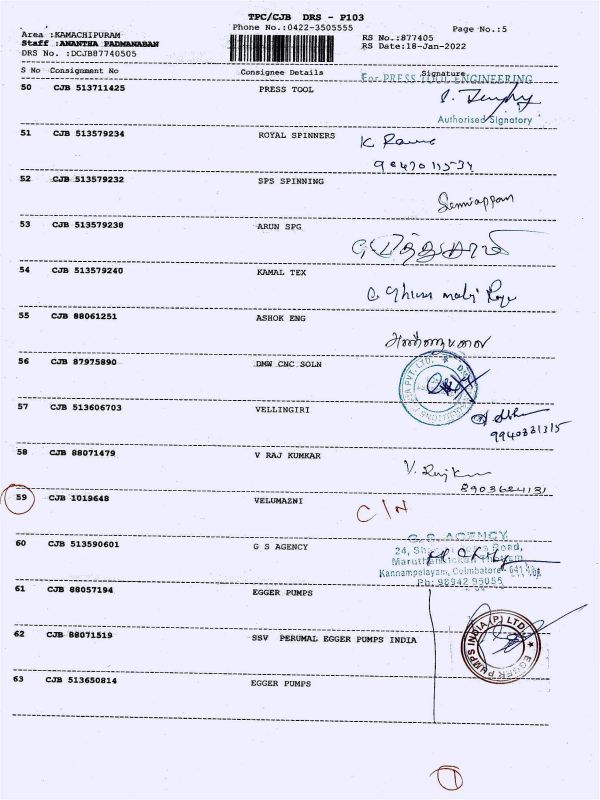 TPC/CJB DRS - P103
Phone No.:0422-3505555
Page No.:5
Area :KAMACHIPURAM
Staff :ANANTHA PADMANABAN
DRS No. :DCJB87740505
RS No.:877405
RS Date:18-Jan-2022
S No Consignment No Consignee Details Signature
For PRESS TOOL ENGINEERING
50 CJB 513711425 PRESS TOOL
Authorised Signatory
51 CJB 513579234 ROYAL SPINNERS
52 CJB 513579232 SPS SPINNING
53 CJB 513579238 ARUN SPG
54 CJB 513579240 KAMAL TEX
55 CJB 88061251 ASHOK ENG
56 CJB 87975890 DMW CNC SOLN
57 CJB 513606703 VELLINGIRI
9940331315
58 CJB 88071479 V RAJ KUMKAR
V. Rajkum
8903624131
59 CJB 1019648 VELUMAZNI
C/N
60 CJB 513590601 G S AGENCY
G.S. AGENCY
24, Road,
Kannampalayam, Coimbatore - 641
Ph: 98942 95055
61 CJB 88057194 EGGER PUMPS
62 CJB 88071519 SSV PERUMAL EGGER PUMPS INDIA
EGGER PUMPS INDIA (P) LTD.
63 CJB 513650814 EGGER PUMPS